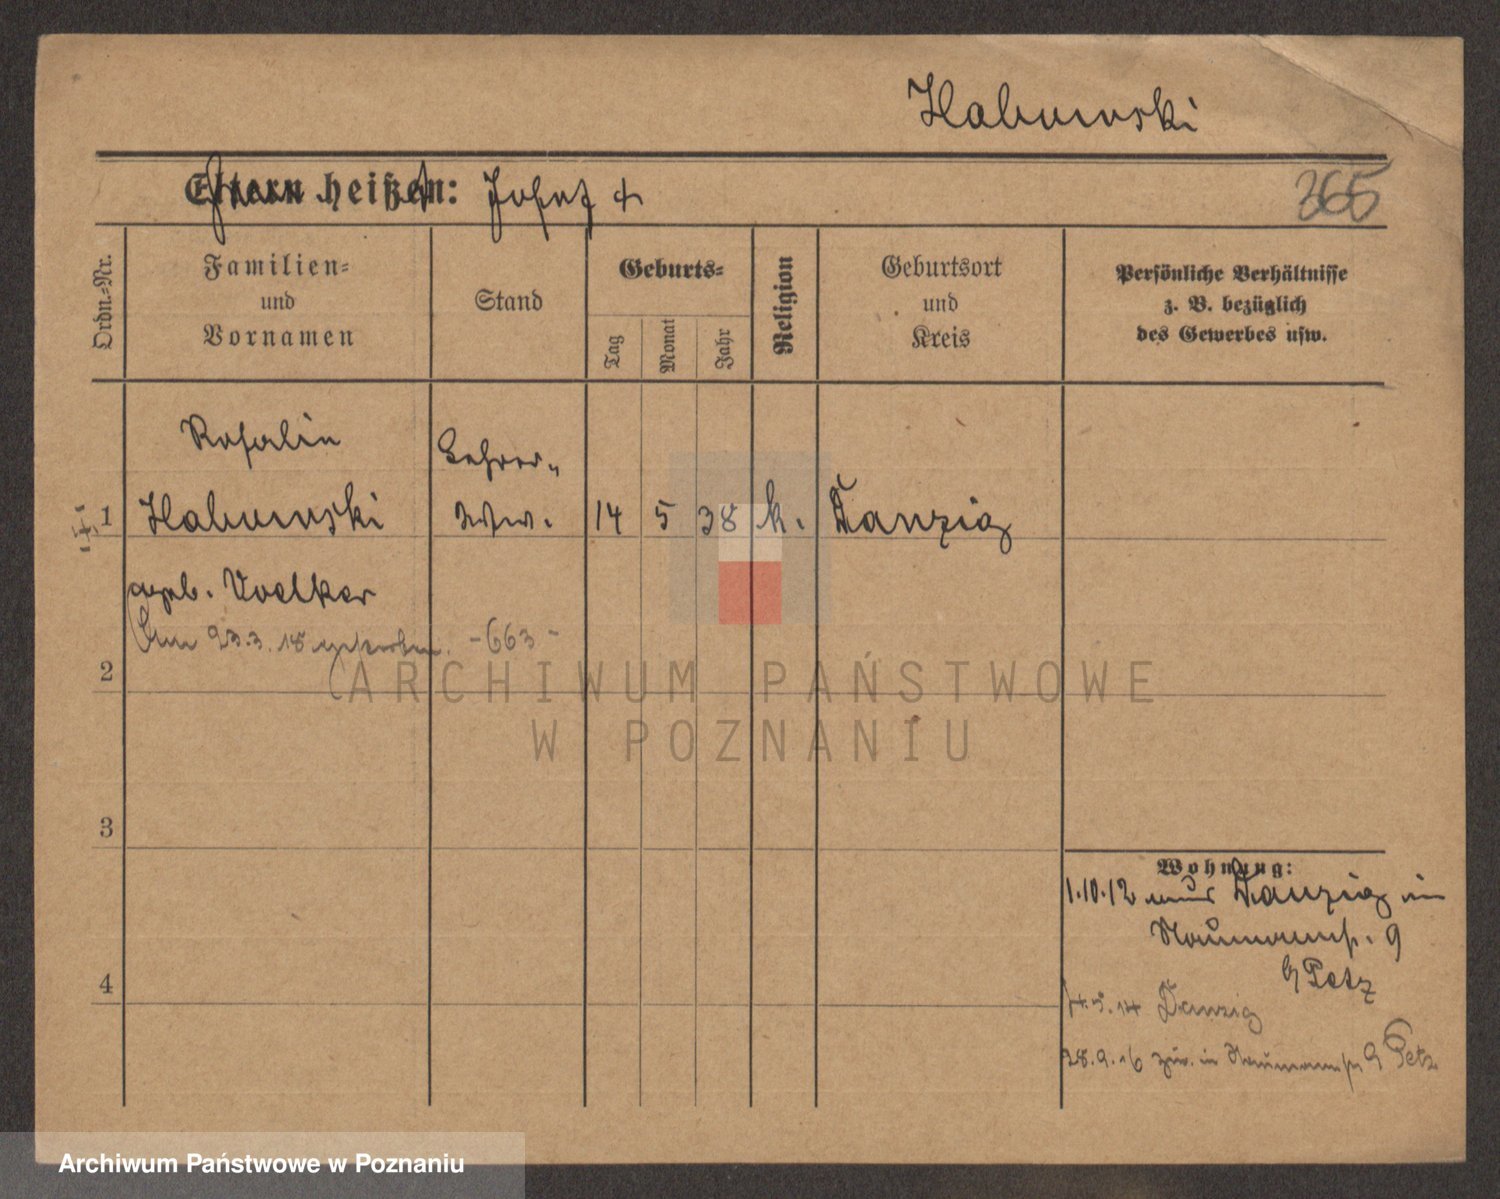 Habowski
Eltern heißen: Josef †
365
Ordn.-Nr.
Familien-
und
Vornamen
Stand
Geburts-
Tag
Monat
Jahr
Religion
Geburtsort
und
Kreis
Persönliche Verhältnisse
z. B. bezüglich
des Gewerbes usw.
Rosalie
Lehrer-
1 Habowski Wtw. 14 5 38 k. Danzig
geb. Voelker
Am 23.3.18 gestorben. -663-
2
3
4
Wohnung:
1.10.12 aus Danzig in
Naumannstr. 9
b/ Petz
4.5.14 Danzig
28.9.16 zur. in Naumannstr 9 Petz
ARCHIWUM PAŃSTWOWE
W POZNANIU
Archiwum Państwowe w Poznaniu